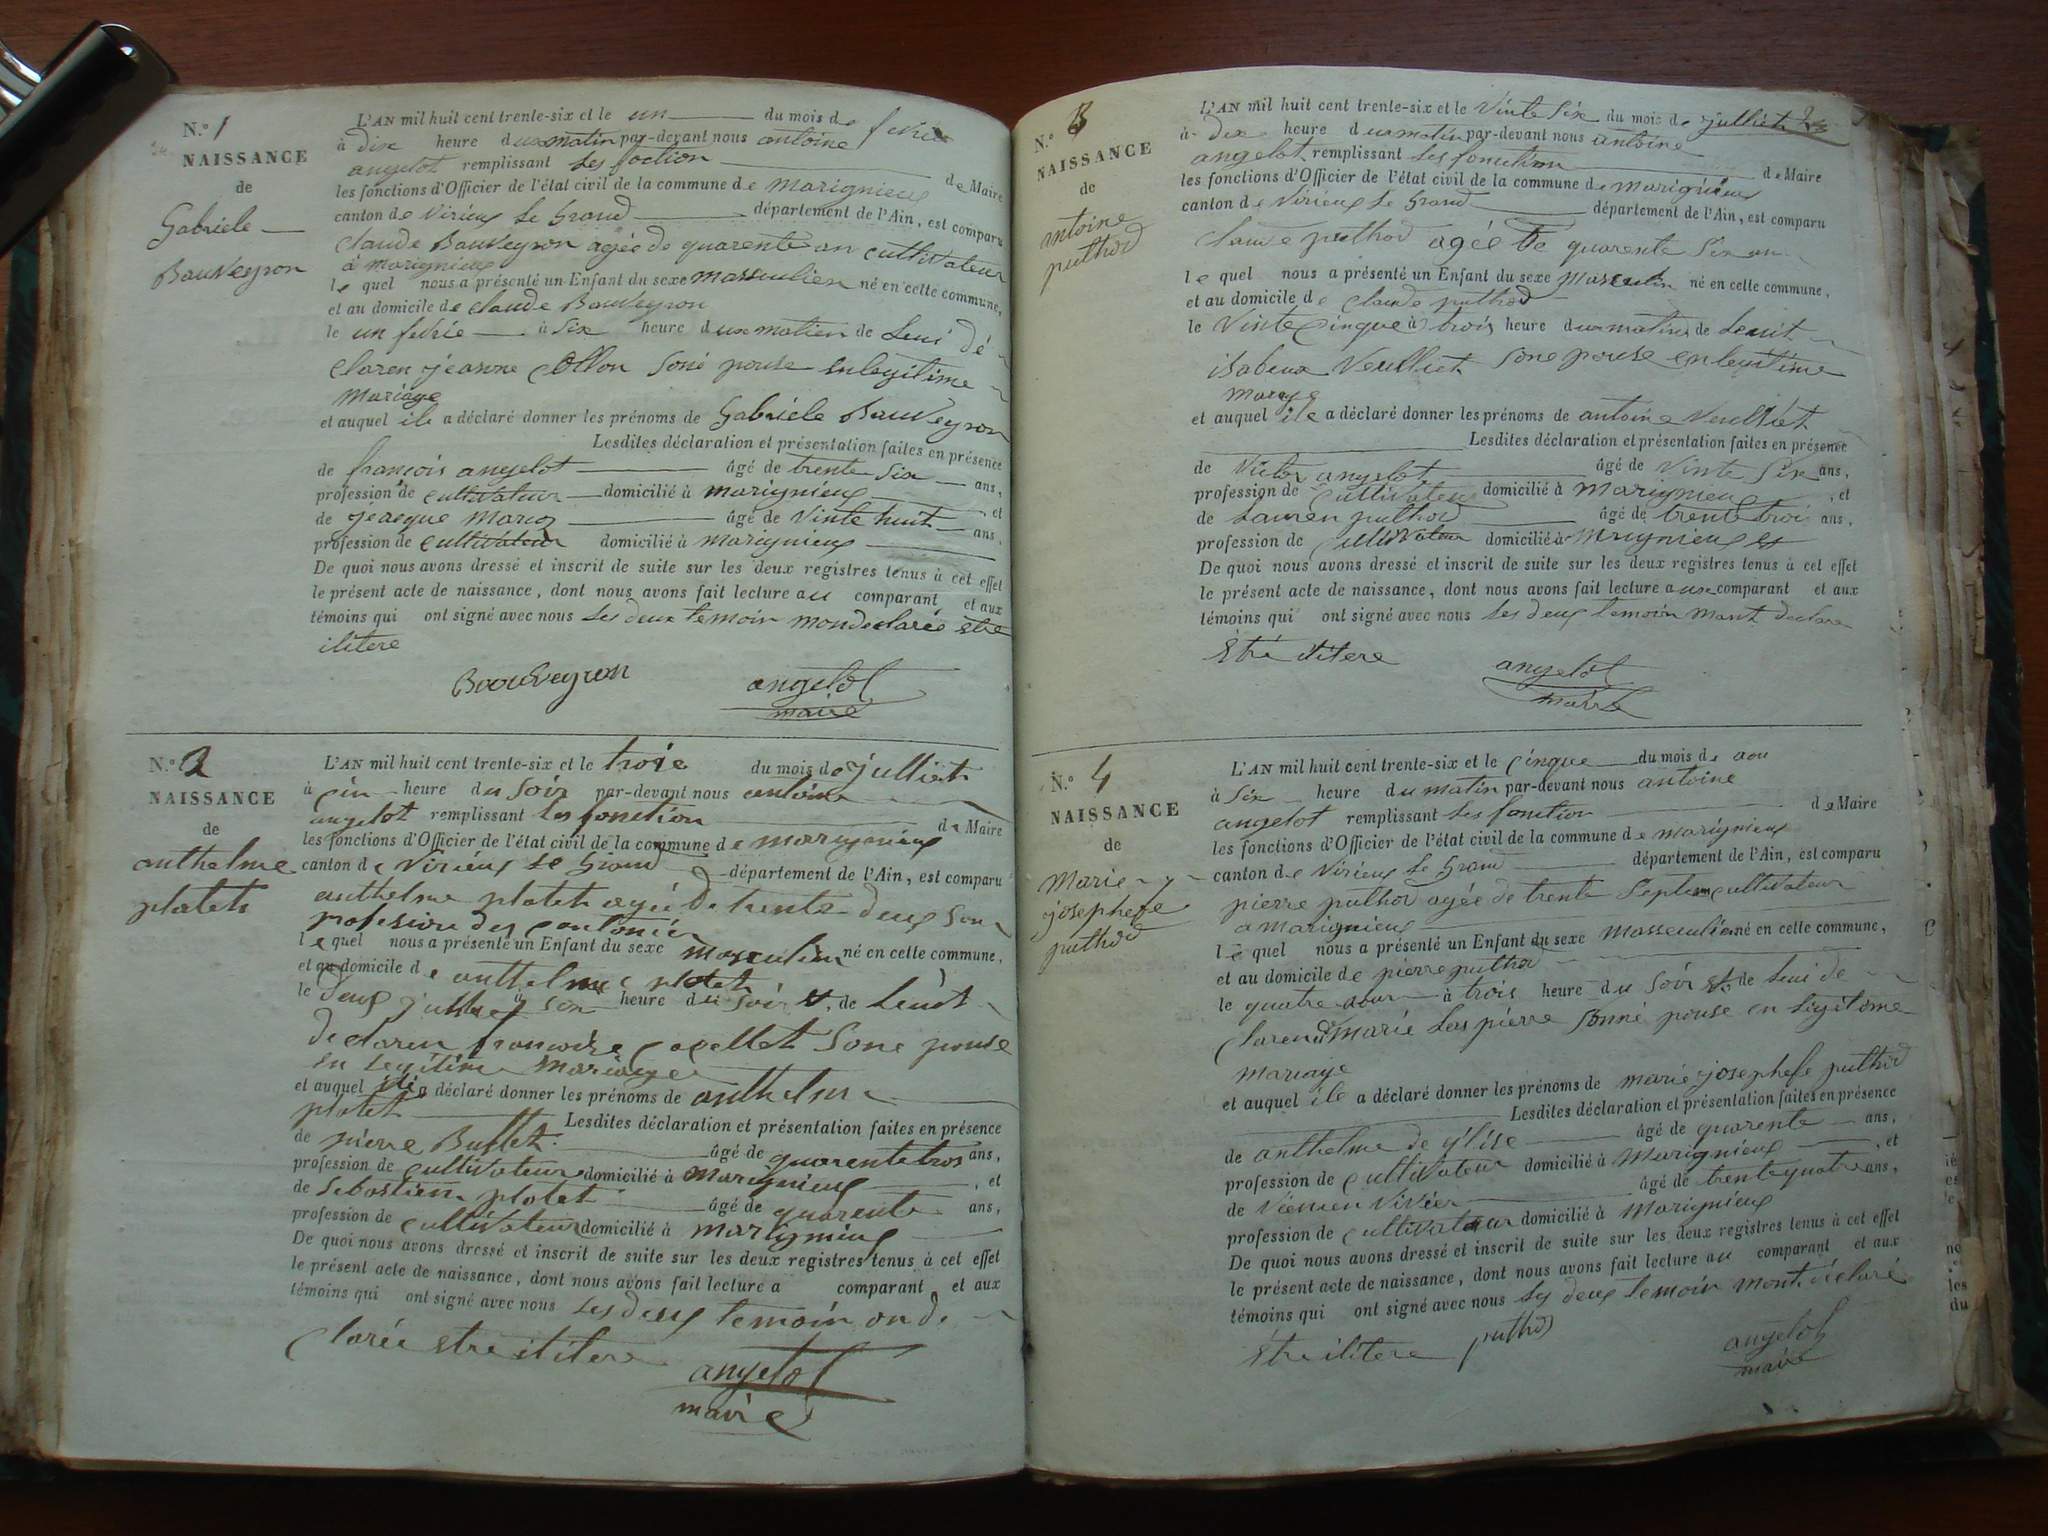 N.º 1
NAISSANCE
de
Gabriele
Bauveyron
L'AN mil huit cent trente-six et le un du mois de fevrie
à dix heure du matin par-devant nous antoine
angelot remplissant les foction de Maire
les fonctions d'Officier de l'état civil de la commune de marignieux
canton de Virieux le Grand département de l'Ain, est comparu
Claude Bauveyron agée de quarente an cultivateur
à marignieux
le quel nous a présenté un Enfant du sexe massculien né en cette commune,
et au domicile de claude Bauveyron
le un fevrie à six heure du matien de Lui dé
claren jeanne Collon soné pouse en legitime
mariage
et auquel ile a déclaré donner les prénoms de Gabriéle Bauveyron
Lesdites déclaration et présentation faites en présence
de françois angelot âgé de trente six ans,
profession de cultivateur domicilié à marignieux et
de jeacque Maroz âgé de vinte huit ans,
profession de cultivateur domicilié à marignieux
De quoi nous avons dressé et inscrit de suite sur les deux registres tenus à cet effet
le présent acte de naissance, dont nous avons fait lecture au comparant et aux
témoins qui ont signé avec nous les deux temoin mon declarée etre
ilitere
Boouveyron angelot
maire
N.º 2
NAISSANCE
de
anthelme
plateh
L'AN mil huit cent trente-six et le trois du mois de julliet
à cin heure du soir par-devant nous antoine
angelot remplissant les fonction de Maire
les fonctions d'Officier de l'état civil de la commune de marignieux
canton de Virieux le Grand département de l'Ain, est comparu
anthelme platet agée de trente deux son
profesion de cantonier
le quel nous a présenté un Enfant du sexe masculien né en cette commune,
et au domicile de anthelme platet
le deux julliet à heure du soir de
declaren francoise son pouse
en legitime mariage
et auquel ile a déclaré donner les prénoms de anthelme
platet Lesdites déclaration et présentation faites en présence
de pierre Bullet âgé de quarente trois ans,
profession de cultivateur domicilié à marignieux, et
de Sebastien platet âgé de quarente ans,
profession de cultivateur domicilié à marignieux
De quoi nous avons dressé et inscrit de suite sur les deux registres tenus à cet effet
le présent acte de naissance, dont nous avons fait lecture a comparant et aux
témoins qui ont signé avec nous les deux temoin on de
clarée etre ilitere angelot
maire
N.º 3
NAISSANCE
de
antoine
puthod
L'AN mil huit cent trente-six et le vinte six du mois de julliet
à dix heure du matin par-devant nous antoine
angelot remplissant les fonuction de Maire
les fonctions d'Officier de l'état civil de la commune de marignieux
canton de Virieux le Grand département de l'Ain, est comparu
Claude puthod agée de quarente six an
le quel nous a présenté un Enfant du sexe Masculin né en cette commune,
et au domicile de claude puthod
le vinte cinque à trois heure du matin de
isabeux Veulliet sone pouse en legitime
mariage
et auquel ile a déclaré donner les prénoms de antoine Veulliet
Lesdites déclaration et présentation faites en présence
de Victor angelot âgé de vinte six ans,
profession de cultivateur domicilié à marignieux, et
de Lauren puthod âgé de trente troi ans,
profession de cultivateur domicilié à Mrignieux
De quoi nous avons dressé et inscrit de suite sur les deux registres tenus à cet effet
le présent acte de naissance, dont nous avons fait lecture aux comparant et aux
témoins qui ont signé avec nous les deux temoin mont declare
etre ilitere angelot
maire
N.º 4
NAISSANCE
de
Marie
josephefe
puthod
L'AN mil huit cent trente-six et le cinque du mois de aou
à six heure du matin par-devant nous antoine
angelot remplissant les fonction de Maire
les fonctions d'Officier de l'état civil de la commune de marignieux
canton de Virieux le Grand département de l'Ain, est comparu
pierre puthod agée de trente sept an cultivateur
a marignieux
le quel nous a présenté un Enfant du sexe massculien né en cette commune,
et au domicile de pierre puthod
le quatre aour à trois heure du soir de Lui de
claren marie Laspierre sonné pouse en legitome
mariage
et auquel ile a déclaré donner les prénoms de marie josephefe puthod
Lesdites déclaration et présentation faites en présence
de anthelme de glise âgé de quarente ans,
profession de cultivateur domicilié à Marignieux, et
de Viemen Vivier âgé de trente quatre ans,
profession de cultivateur domicilié à Marignieux
De quoi nous avons dressé et inscrit de suite sur les deux registres tenus à cet effet
le présent acte de naissance, dont nous avons fait lecture au comparant et aux
témoins qui ont signé avec nous les deux temoin mont déclaré
etre ilitere puthod angelot
maire